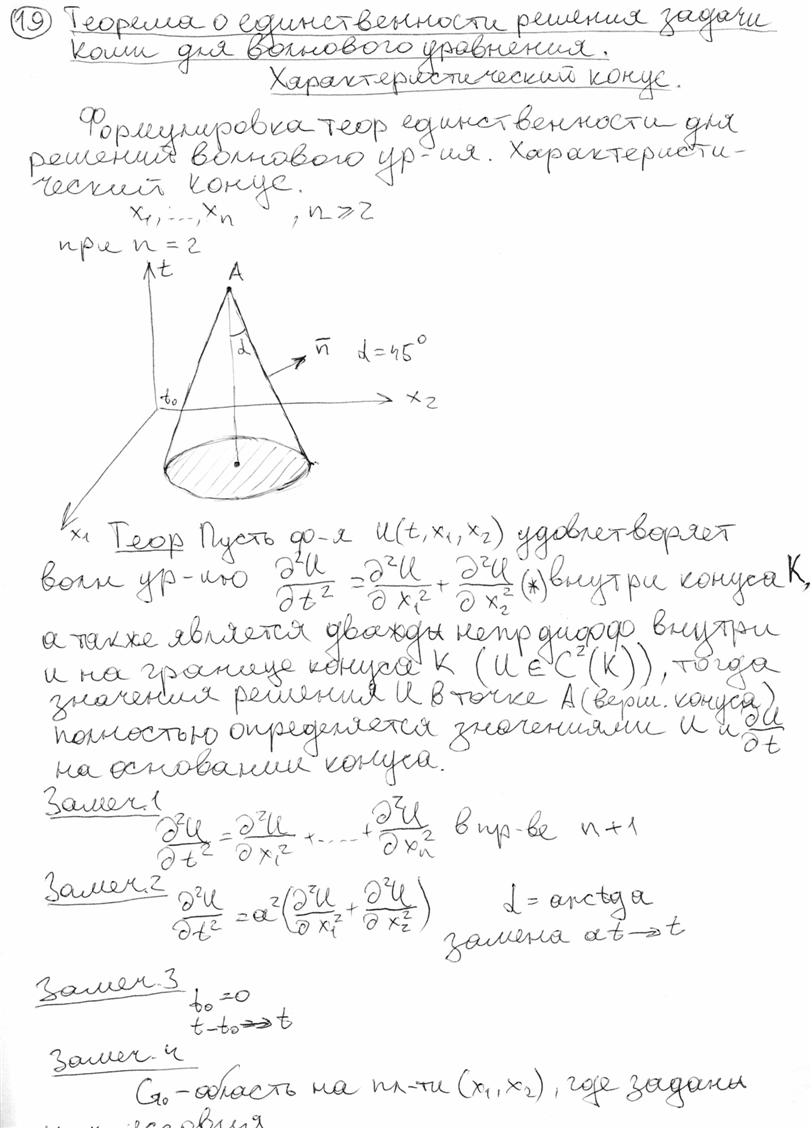 19 Теорема о единственности решения задачи
Коши для волнового уравнения.
Характеристический конус.
Формулировка теор единственности для
решений волнового ур-ия. Характеристи-
ческий конус.
x₁,...,xₙ , n ⩾ 2
при n = 2
t
A
α
n̄ α=45°
t₀
x₂
x₁ Теор Пусть ф-я U(t,x₁,x₂) удовлетворяет
волн ур-ию ∂²U/∂t² = ∂²U/∂x₁² + ∂²U/∂x₂² (*) внутри конуса K,
а также является дважды непр дифф внутри
и на границе конуса K (U ∈ C²(K)), тогда
значения решения U в точке A (верш. конуса)
полностью определяется значениями U и ∂U/∂t
на основании конуса.
Замеч.1
∂²U/∂t² = ∂²U/∂x₁² + .... + ∂²U/∂xₙ² в пр-ве n+1
Замеч.2
∂²U/∂t² = a²(∂²U/∂x₁² + ∂²U/∂x₂²) α = arctg a
замена at → t
Замеч.3
t₀ = 0
t-t₀ → t
Замеч.4
G₀ - область на пл-ти (x₁,x₂), где заданы